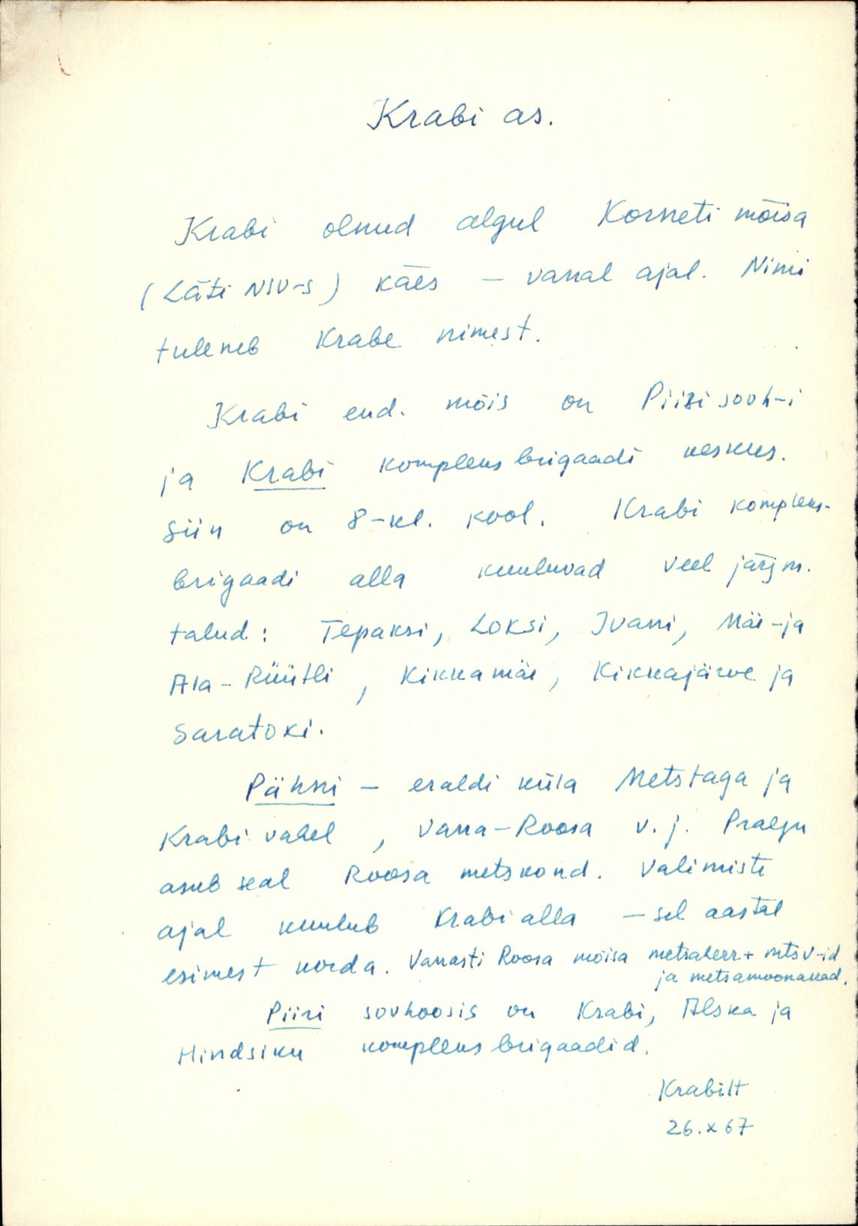 Krabi as.
Krabi olnud algul Korneti mõisa
(Läti NSV-s) käes – vanal ajal. Nimi
tuleneb Krabe nimest.
Krabi end. mõis on Piiri sovh-i
ja Krabi kompleksbrigaadi keskus.
Siin on 8-kl. kool. Krabi kompleks-
brigaadi alla kuuluvad veel järgm.
talud: Tepaksi, Loksi, Ivani, Mäe-ja
Ala-Rüütli, Kikkamäe, Kikkajärve ja
Saratoki.
Pähni – eraldi küla Metstaga ja
Krabi vahel, Vana-Roosa v.j. Praegu
asub seal Roosa metskond. Valimiste
ajal kuulub Krabi alla – sel aastal
esimest korda. Vanasti Roosa mõisa metsaherr + mtsv-id
ja metsamoonakad.
Piiri sovhoosis on Krabi, Alska ja
Hindsiku kompleksbrigaadid.
Krabilt
26.X 67